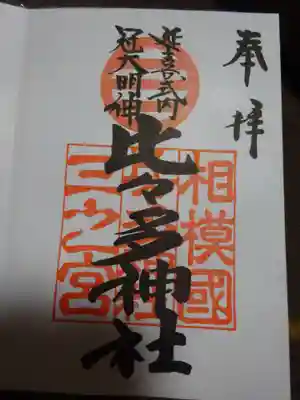 奉拝
延喜式内
冠大明神
比々多神社
相模國
三之宮